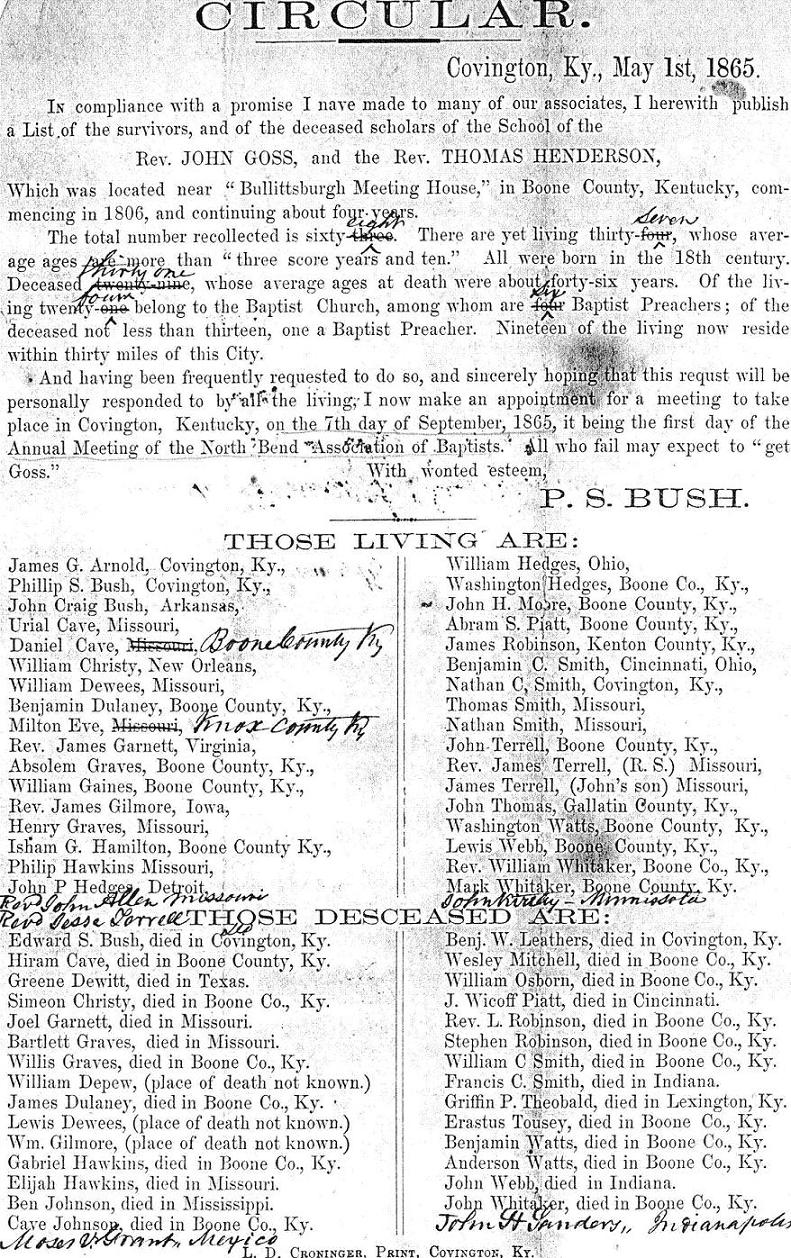 CIRCULAR.
Covington, Ky., May 1st, 1865.
In compliance with a promise I have made to many of our associates, I herewith publish
a List of the survivors, and of the deceased scholars of the School of the
Rev. JOHN GOSS, and the Rev. THOMAS HENDERSON,
Which was located near "Bullittsburgh Meeting House," in Boone County, Kentucky, com-
mencing in 1806, and continuing about four years.
eight seven
The total number recollected is sixty-three. There are yet living thirty-four, whose aver-
age ages are more than "three score years and ten." All were born in the 18th century.
thirty one
Deceased twenty-nine, whose average ages at death were about forty-six years. Of the liv-
four six
ing twenty-one belong to the Baptist Church, among whom are four Baptist Preachers; of the
deceased not less than thirteen, one a Baptist Preacher. Nineteen of the living now reside
within thirty miles of this City.
And having been frequently requested to do so, and sincerely hoping that this requst will be
personally responded to by all the living, I now make an appointment for a meeting to take
place in Covington, Kentucky, on the 7th day of September, 1865, it being the first day of the
Annual Meeting of the North Bend Association of Baptists. All who fail may expect to "get
Goss." With wonted esteem,
P. S. BUSH.
THOSE LIVING ARE:
James G. Arnold, Covington, Ky.,
Phillip S. Bush, Covington, Ky.,
John Craig Bush, Arkansas,
Urial Cave, Missouri,
Daniel Cave, Missouri, Boone County Ky
William Christy, New Orleans,
William Dewees, Missouri,
Benjamin Dulaney, Boone County, Ky.,
Milton Eve, Missouri, Knox County Ky
Rev. James Garnett, Virginia,
Absolem Graves, Boone County, Ky.,
William Gaines, Boone County, Ky.,
Rev. James Gilmore, Iowa,
Henry Graves, Missouri,
Isham G. Hamilton, Boone County Ky.,
Philip Hawkins Missouri,
John P Hedges, Detroit,
Revd John Allen Missouri
Revd Jesse Torrell Do
William Hedges, Ohio,
Washington Hedges, Boone Co., Ky.,
John H. Moore, Boone County, Ky.,
Abram S. Piatt, Boone County, Ky.,
James Robinson, Kenton County, Ky.,
Benjamin C. Smith, Cincinnati, Ohio,
Nathan C, Smith, Covington, Ky.,
Thomas Smith, Missouri,
Nathan Smith, Missouri,
John Terrell, Boone County, Ky.,
Rev. James Terrell, (R. S.) Missouri,
James Terrell, (John's son) Missouri,
John Thomas, Gallatin County, Ky.,
Washington Watts, Boone County, Ky.,
Lewis Webb, Boone County, Ky.,
Rev. William Whitaker, Boone Co., Ky.,
Mark Whitaker, Boone County, Ky.
John Kirtley - Minnesota
THOSE DESCEASED ARE:
Edward S. Bush, died in Covington, Ky.
Hiram Cave, died in Boone County, Ky.
Greene Dewitt, died in Texas.
Simeon Christy, died in Boone Co., Ky.
Joel Garnett, died in Missouri.
Bartlett Graves, died in Missouri.
Willis Graves, died in Boone Co., Ky.
William Depew, (place of death not known.)
James Dulaney, died in Boone Co., Ky.
Lewis Dewees, (place of death not known.)
Wm. Gilmore, (place of death not known.)
Gabriel Hawkins, died in Boone Co., Ky.
Elijah Hawkins, died in Missouri.
Ben Johnson, died in Mississippi.
Cave Johnson, died in Boone Co., Ky.
Moses V. Grant, Mexico
Benj. W. Leathers, died in Covington, Ky.
Wesley Mitchell, died in Boone Co., Ky.
William Osborn, died in Boone Co., Ky.
J. Wicoff Piatt, died in Cincinnati.
Rev. L. Robinson, died in Boone Co., Ky.
Stephen Robinson, died in Boone Co., Ky.
William C Smith, died in Boone Co., Ky.
Francis C. Smith, died in Indiana.
Griffin P. Theobald, died in Lexington, Ky.
Erastus Tousey, died in Boone Co., Ky.
Benjamin Watts, died in Boone Co., Ky.
Anderson Watts, died in Boone Co., Ky.
John Webb, died in Indiana.
John Whitaker, died in Boone Co., Ky.
John H Sanders, Indianapolis
L. D. Croninger, Print, Covington, Ky.